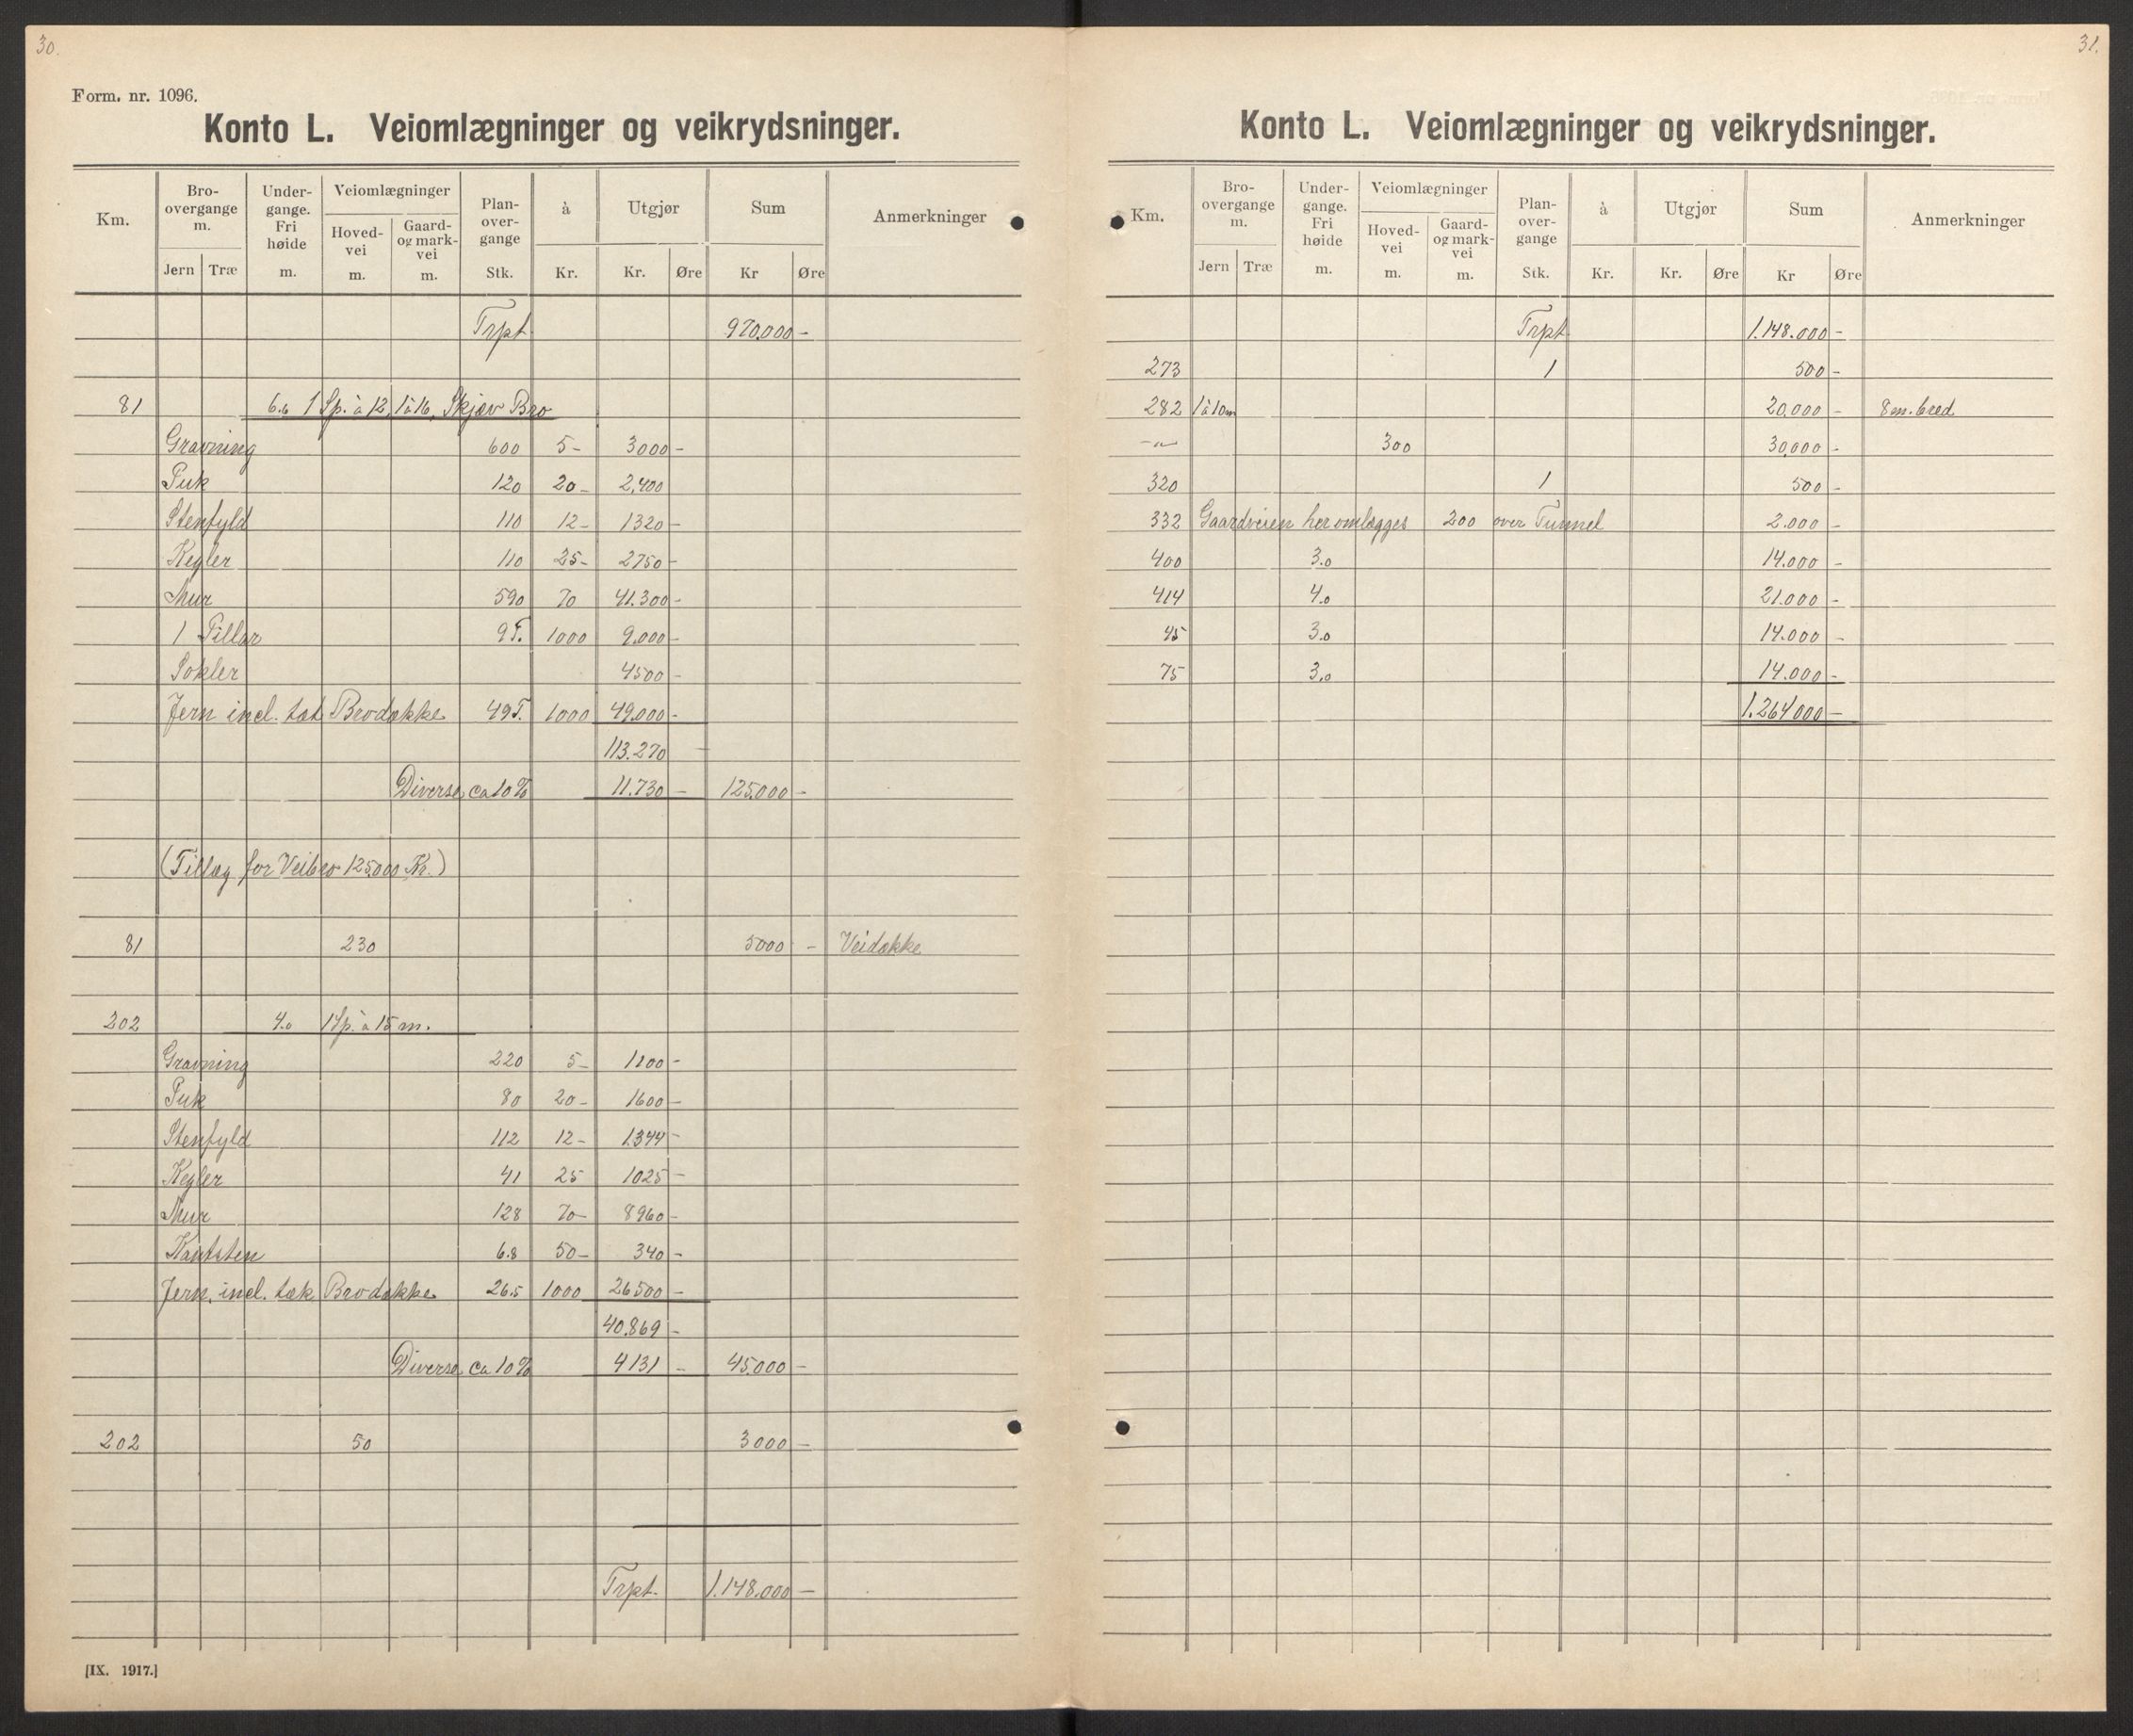 30.
Form. nr. 1096.
Konto L. Veiomlægninger og veikrydsninger.
Km. Bro-overgange m. Jern Træ Under-gange. Fri høide m. Veiomlægninger Hoved-vei m. Gaard- og mark-vei m. Plan-over-gange Stk. à Kr. Utgjør Kr. Øre Sum Kr Øre Anmerkninger
Trpt 970.000 -
81 6.6 1 Sp. à 12, 1 à 16, Skjæv Bro
Gravning 600 5- 3000 -
Puk 120 20- 2,400
Stenfyld 110 12- 1320 -
Kegler 110 25- 2750 -
Mur 590 70 41.300 -
1 Pillar 9 T. 1000 9.000 -
Sokler 4500 -
Jern incl. tæt Brodække 49 T. 1000 49.000 -
113.270 -
Diverse ca 10 % 11.730 - 125.000 -
(Tillæg for Veibro 125.000 Kr.)
81 230 5000 - Veidække
202 4.0 1 Sp. à 15 m.
Gravning 220 5- 1100 -
Puk 80 20- 1600 -
Stenfyld 112 12- 1344 -
Kegler 41 25 1025 -
Mur 128 70- 8960 -
Kantsten 6.8 50- 340 -
Jern, incl. tæk Brodække 26.5 1000 26500 -
40.869 -
Diverse ca 10 % 4131 - 45.000 -
202 50 3000 -
Trpt. 1.148.000 -
[IX. 1917.]
31.
Konto L. Veiomlægninger og veikrydsninger.
Km. Bro-overgange m. Jern Træ Under-gange. Fri høide m. Veiomlægninger Hoved-vei m. Gaard- og mark-vei m. Plan-over-gange Stk. à Kr. Utgjør Kr. Øre Sum Kr Øre Anmerkninger
Trpt 1.148.000 -
273 1 500 -
282 1 à 10m 20,000 - 8 m. bred
-"- 300 30,000 -
320 1 500 -
332 Gaardveien her omlægges 200 over Tunnel 2.000 -
400 3.0 14.000 -
414 4.0 21.000 -
45 3.0 14.000 -
75 3.0 14.000 -
1.264.000 -